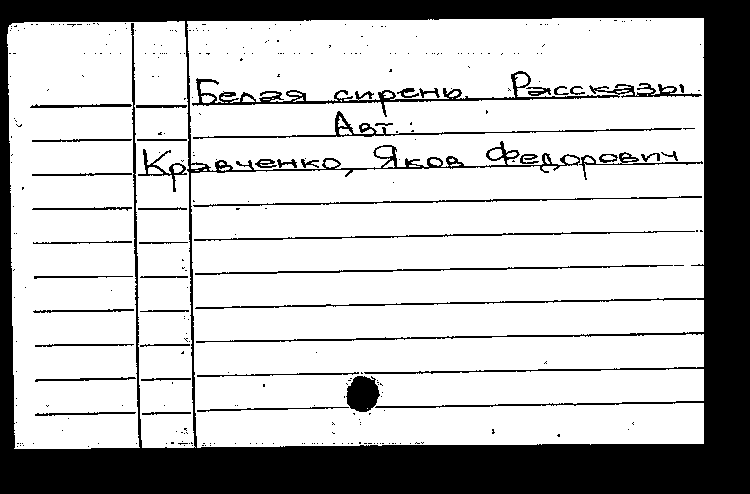 Белая сирень. Рассказы
Авт.:
Кравченко, Яков Федорович